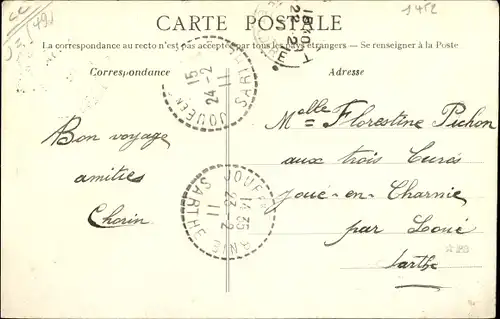 CARTE POSTALE
La correspondance au recto n'est pas acceptée par tous les pays étrangers — Se renseigner à la Poste
Correspondance
Adresse
Bon voyage
amitiés
Chorin
Melle Florestine Pichon
aux trois Curés
Joué-en-Charnie
par Loué
Sarthe
15
24-2
11
SARTHE
14 25
23-2
11
SARTHE